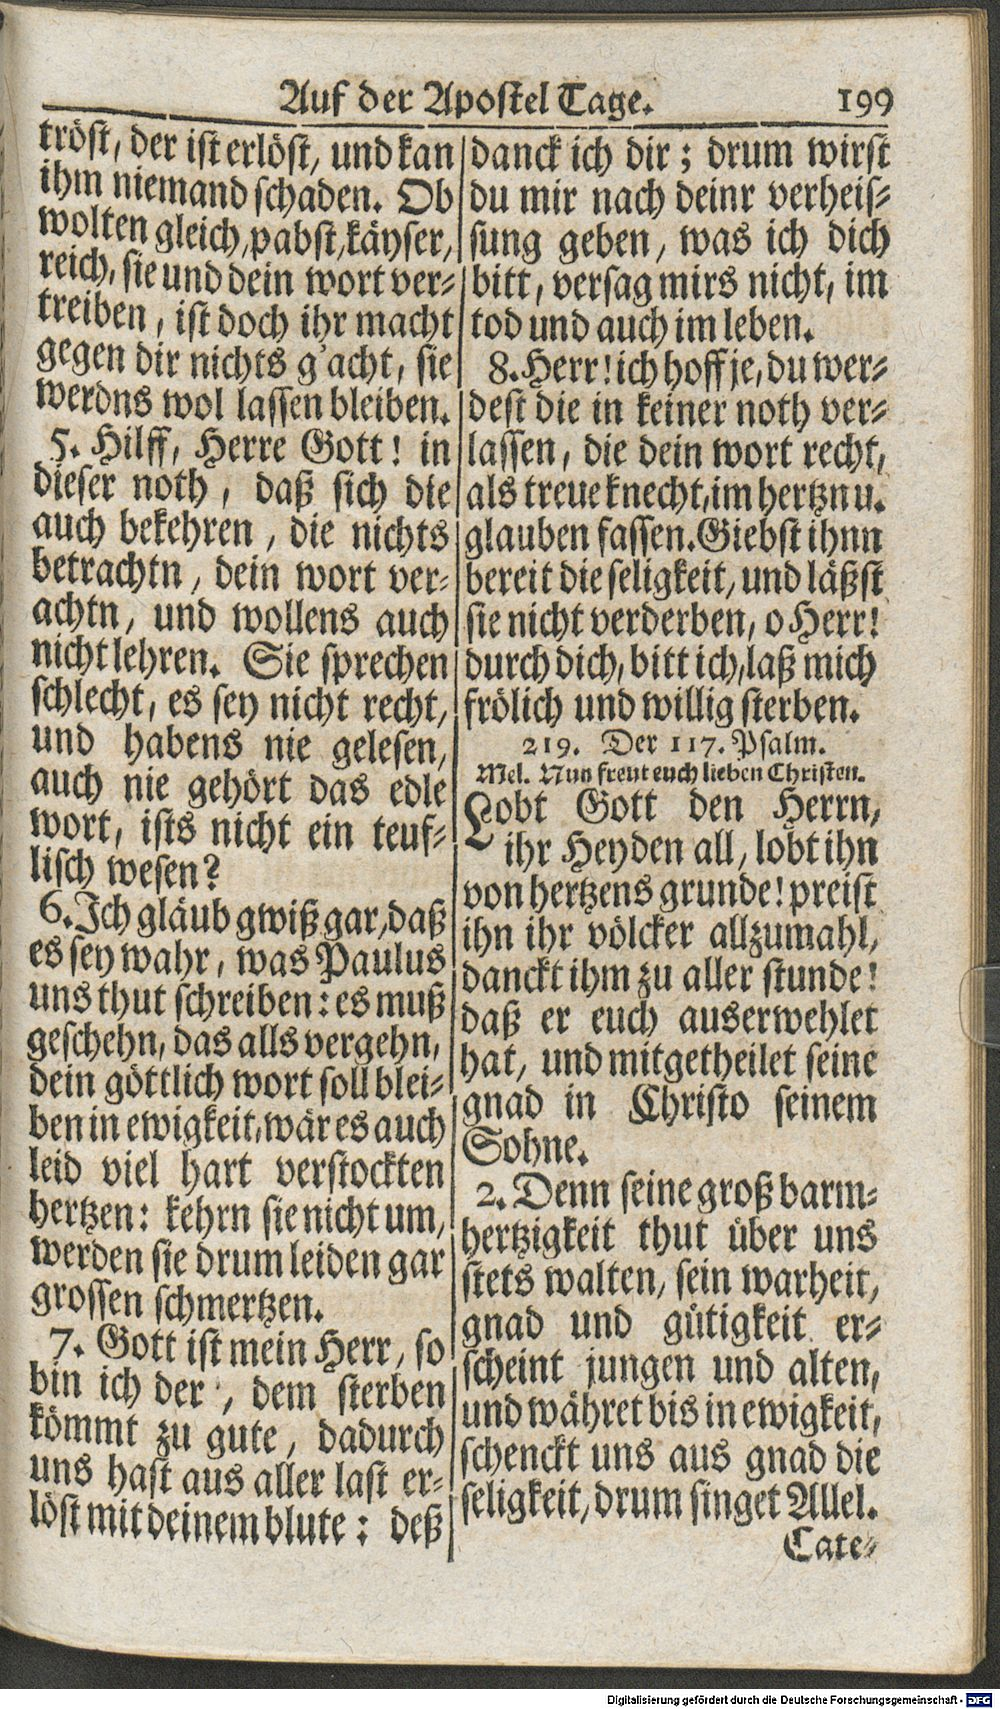 Auf der Apostel Tage. 199
tröst, der ist erlöst, und kan
ihm niemand schaden. Ob
wolten gleich, pabst, käyser,
reich, sie und dein wort ver-
treiben, ist doch ihr macht
gegen dir nichts g'acht, sie
werdns wol lassen bleiben.
5. Hilff, Herre Gott! in
dieser noth, daß sich die
auch bekehren, die nichts
betrachtn, dein wort ver-
achtn, und wollens auch
nicht lehren. Sie sprechen
schlecht, es sey nicht recht,
und habens nie gelesen,
auch nie gehört das edle
wort, ists nicht ein teuf-
lisch wesen?
6. Ich gläub gwiß gar, daß
es sey wahr, was Paulus
uns thut schreiben: es muß
geschehn, das alls vergehn,
dein göttlich wort soll blei-
ben in ewigkeit, wär es auch
leid viel hart verstockten
hertzen: kehrn sie nicht um,
werden sie drum leiden gar
grossen schmertzen.
7. Gott ist mein Herr, so
bin ich der, dem sterben
kömmt zu gute, dadurch
uns hast aus aller last er-
löst mit deinem blute: deß
danck ich dir; drum wirst
du mir nach deinr verheis-
sung geben, was ich dich
bitt, versag mirs nicht, im
tod und auch im leben.
8. Herr! ich hoff je, du wer-
dest die in keiner noth ver-
lassen, die dein wort recht,
als treue knecht, im hertzn u.
glauben fassen. Giebst ihnn
bereit die seligkeit, und läßst
sie nicht verderben, o Herr!
durch dich, bitt ich, laß mich
frölich und willig sterben.
219. Der 117. Psalm.
Mel. Nun freut euch lieben Christen.
Lobt Gott den Herrn,
ihr Heyden all, lobt ihn
von hertzens grunde! preist
ihn ihr völcker allzumahl,
danckt ihm zu aller stunde!
daß er euch auserwehlet
hat, und mitgetheilet seine
gnad in Christo seinem
Sohne.
2. Denn seine groß barm-
hertzigkeit thut über uns
stets walten, sein warheit,
gnad und gütigkeit er-
scheint jungen und alten,
und währet bis in ewigkeit,
schenckt uns aus gnad die
seligkeit, drum singet Allel.
Cate-
Digitalisierung gefördert durch die Deutsche Forschungsgemeinschaft - DFG